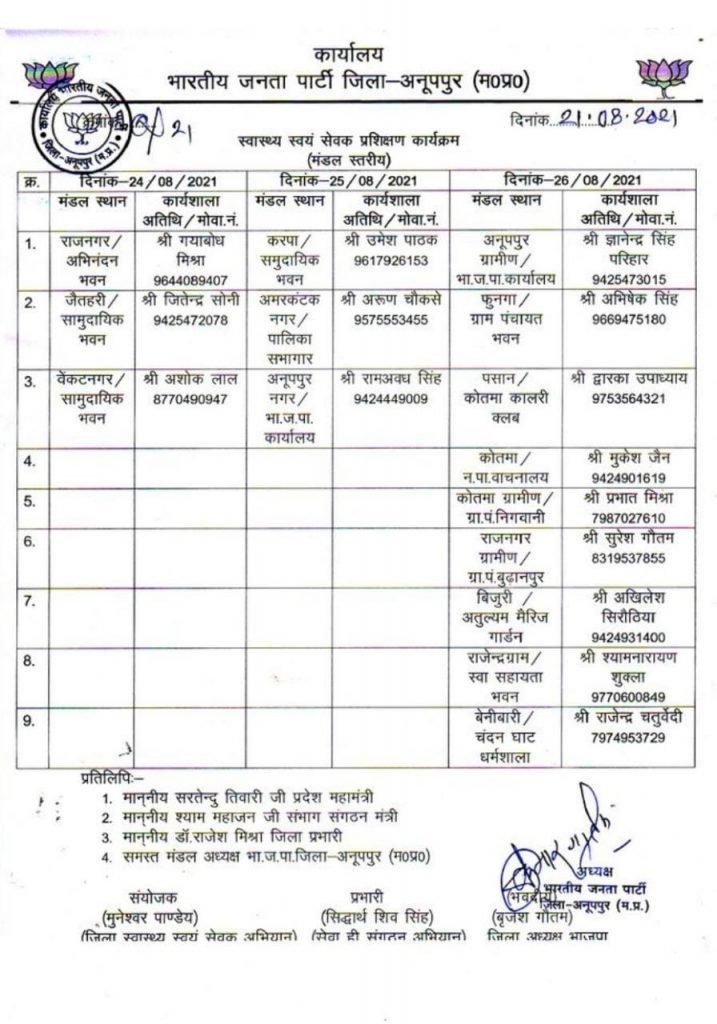 कार्यालय
भारतीय जनता पार्टी जिला–अनूपपुर (म0प्र0)
दिनांक...21.08.2021
स्वास्थ्य स्वयं सेवक प्रशिक्षण कार्यक्रम
(मंडल स्तरीय)
क्र. दिनांक–24/08/2021 दिनांक–25/08/2021 दिनांक–26/08/2021
मंडल स्थान कार्यशाला मंडल स्थान कार्यशाला मंडल स्थान कार्यशाला
अतिथि/मोवा.नं. अतिथि/मोवा.नं. अतिथि/मोवा.नं.
1. राजनगर/ श्री गयाबोध करपा/ श्री उमेश पाठक अनूपपुर श्री ज्ञानेन्द्र सिंह
अभिनंदन मिश्रा समुदायिक 9617926153 ग्रामीण/ परिहार
भवन 9644089407 भवन भा.ज.पा.कार्यालय 9425473015
2. जैतहरी/ श्री जितेन्द्र सोनी अमरकंटक श्री अरूण चौकसे फुनगा/ श्री अभिषेक सिंह
सामुदायिक 9425472078 नगर/ 9575553455 ग्राम पंचायत 9669475180
भवन पालिका भवन
सभागार
3. वेंकटनगर/ श्री अशोक लाल अनूपपुर श्री रामअवध सिंह पसान/ श्री द्वारका उपाध्याय
सामुदायिक 8770490947 नगर/ 9424449009 कोतमा कालरी 9753564321
भवन भा.ज.पा. क्लब
कार्यालय
4. कोतमा/ श्री मुकेश जैन
न.पा.वाचनालय 9424901619
5. कोतमा ग्रामीण/ श्री प्रभात मिश्रा
ग्रा.पं.निगवानी 7987027610
6. राजनगर श्री सुरेश गौतम
ग्रामीण/ 8319537855
ग्रा.पं.बुढ़ानपुर
7. बिजुरी / श्री अखिलेश
अतुल्यम मैरिज सिरौठिया
गार्डन 9424931400
8. राजेन्द्रग्राम/ श्री श्यामनारायण
स्वा सहायता शुक्ला
भवन 9770600849
9. बेनीबारी/ श्री राजेन्द्र चतुर्वेदी
चंदन घाट 7974953729
धर्मशाला
प्रतिलिपिः–
1. माननीय सरतेन्दु तिवारी जी प्रदेश महामंत्री
2. माननीय श्याम महाजन जी संभाग संगठन मंत्री
3. माननीय डॉ.राजेश मिश्रा जिला प्रभारी
4. समस्त मंडल अध्यक्ष भा.ज.पा.जिला–अनूपपुर (म0प्र0)
अध्यक्ष
भारतीय जनता पार्टी
जिला-अनूपपुर (म.प्र.)
संयोजक प्रभारी (भवदीय)
(मुनेश्वर पाण्डेय) (सिद्धार्थ शिव सिंह) (बृजेश गौतम)
(जिला स्वास्थ्य स्वयं सेवक अभियान) (सेवा ही संगठन अभियान) जिला अध्यक्ष भाजपा